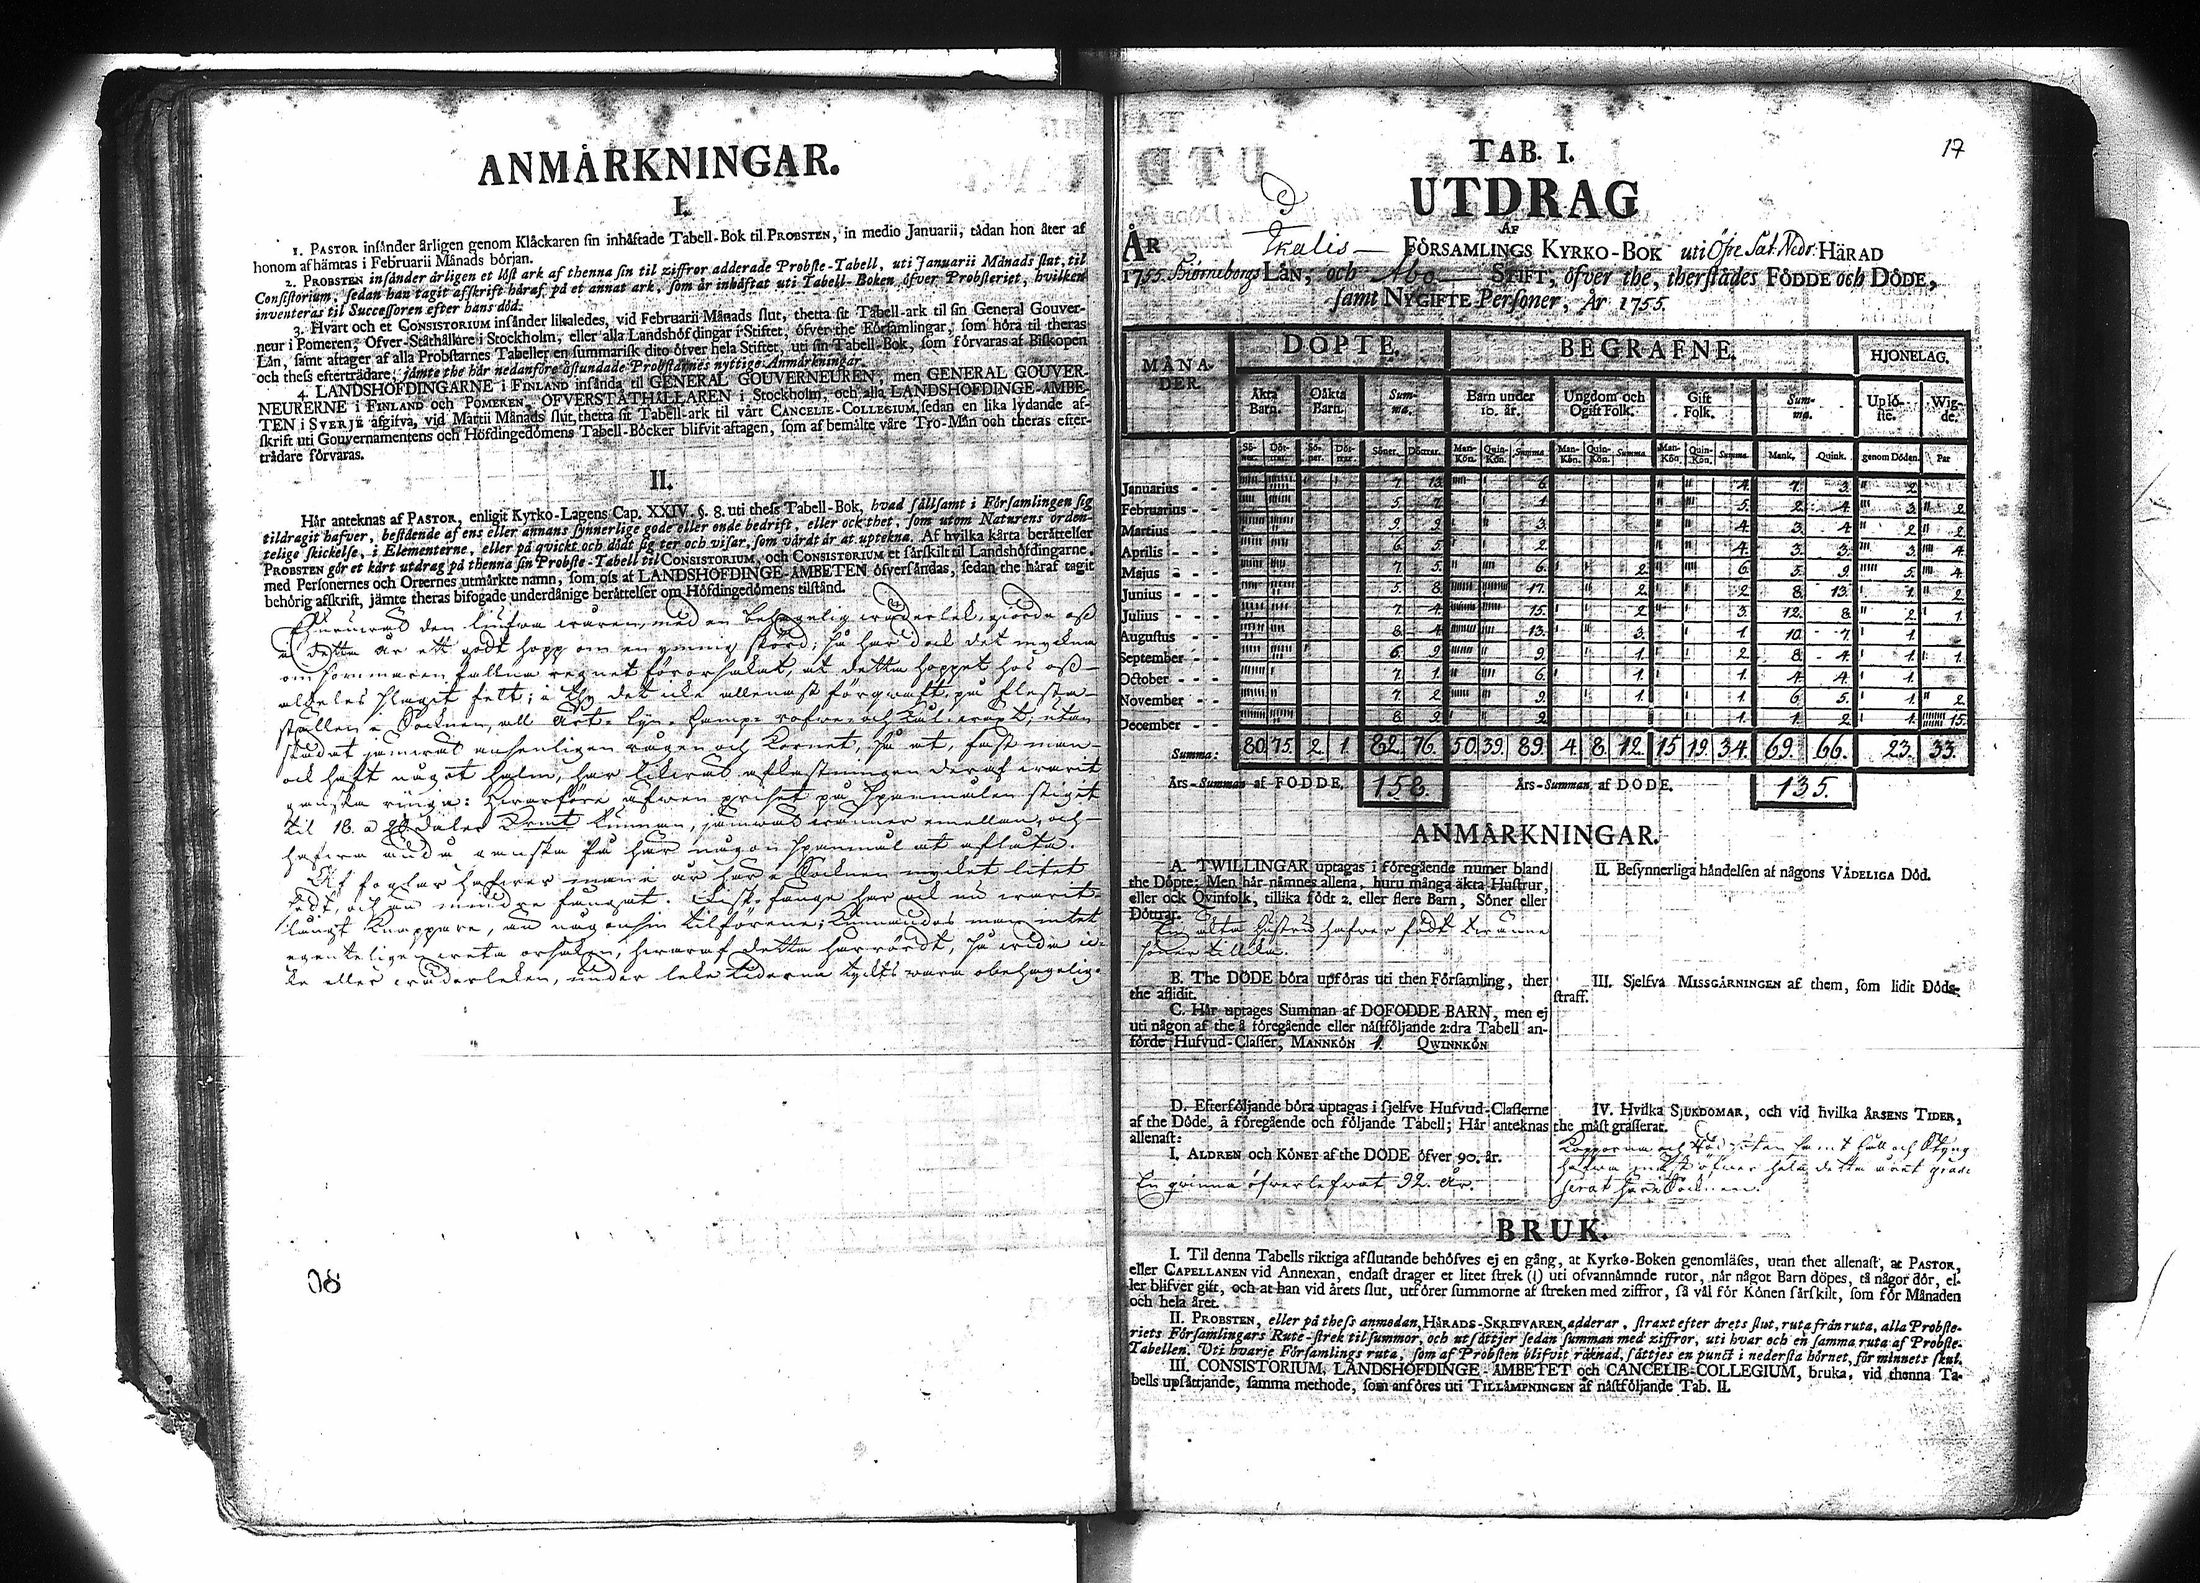 ANMÅRKNINGAR.
I.
1. PASTOR insånder årligen genom Klåckaren sin inhåftade Tabell-Bok til PROBSTEN, in medio Januarii, tådan hon åter af
honom afhåmtas i Februarii Månads början.
2. PROBSTEN insånder årligen et löst ark af thenna sin til ziffror adderade Probste-Tabell, uti Januarii Månads slut, til
Consistorium, sedan han tagit afskrift håraf på et annat ark, som år inhåftat uti Tabell-Boken öfver Probsteriet, hvilken
inventeras til Successoren efter hans död.
3. Hvart och et CONSISTORIUM insånder likaledes, vid Februarii Månads slut, thetta sit Tabell-ark til sin General Gouver-
neur i Pomeren, Öfver-Ståthållare i Stockholm, eller alla Landshöfdingar i Stiftet, öfver the Församlingar, som höra til theras
Lån, samt aftager af alla Probstarnes Tabeller en summarisk dito öfver hela Stiftet, uti sin Tabell-Bok, som förvaras af Biskopen
och thess efterträdare; jåmte the hår nedanföre åstundade Probstarnes nyttige Anmårkningar.
4. LANDSHÖFDINGARNE i FINLAND insånda til GENERAL GOUVERNEUREN, men GENERAL GOUVER-
NEURERNE i FINLAND och POMEREN, ÖFVERSTÅTHÅLLAREN i Stockholm, och alla LANDSHÖFDINGE-ÅMBE-
TEN i SVERJE afgifva, vid Martii Månads slut, thetta sit Tabell-ark til vårt CANCELIE-COLLEGIUM, sedan en lika lydande af-
skrift uti Gouvernamentens och Höfdingedömens Tabell-Böcker blifvit aftagen, som af bemålte våre Tro-Mån och theras efter-
trådare förvaras.
II.
Hår anteknas af PASTOR, enligit Kyrko-Lagens Cap. XXIV. §. 8. uti thess Tabell-Bok, hvad sållsamt i Församlingen sig
tildragit hafver, bestående af ens eller annans synnerlige gode eller onde bedrift, eller ock thet, som utom Naturens orden-
telige skickelse, i Elementerne, eller på qvickt och dödt sig ter och visar, som vårdt år at uptekna. Af hvilka kårta beråttelser
PROBSTEN gör et kårt utdrag på thenna sin Probste-Tabell til CONSISTORIUM, och CONSISTORIUM et sårskilt til Landshöfdingarne,
med Personernes och Orternes utmårkte namn, som oss af LANDSHÖFDINGE-ÅMBETEN öfversåndas, sedan the håraf tagit
behörig afskrift, jåmte theras bifogade underdånige beråttelser om Höfdingedömens tilstånd.
Ehuruwäl den liufwa wåren, med en behagelig wäderlek, giorde oss
detta år ett godt hopp om en ymnig skörd; så har dock det myckna
om sommaren fallna regnet förorsakat, at detta hoppet hos oss
aldeles slaget felt; Ty det icke allenast förqwaft på flesta
ställen i Socknen, all Ärt- Lijn- Hamp- rofwe- och Kål-wäxt, utan
skadat jämwäl ansenligen rågen och Kornet, så at, fast man
ock haft något halm, har likwäl afkastningen deraf warit
ganska ringa: hwarföre äfwen prijset på spannmålen stiget
til 18. a 20. daler Kmt tunnan, jämwäl wänner emellan, och
hafwa ändå ganska få här någon spannmål at aflåta.
Af foglar hafwer man i år här i Socknen mycket litet
sedt, och än mindre fångat. Fisk-fånge har ock nu warit
långt knappare, än någonsin tilförene; Kunnandes man intet
egenteligen weta orsaken, hwaraf detta har rördt, så wida ic-
ke eller wäderleken, under leke tiderna tyckts wara obehagelig.
80
17
TAB. I.
UTDRAG
AF
ÅR Ikalis FÖRSAMLINGS KYRKO-BOK uti Öfre Sat. Nedr. HÄRAD
1755. Biörneborgs LÅN, och Åbo STIFT, öfver the, therstådes FÖDDE och DÖDE,
samt NYGIFTE Personer, År 1755.
MÅNA-DER. DÖPTE. BEGRAFNE. HJONELAG.
Åkta Barn. Oåkta Barn. Sum-ma. Barn under 10. år. Ungdom och Ogift Folk. Gift Folk. Sum-ma. Uplö-ste. Wig-de.
Sö-ner. Döt-trar. Sö-ner. Döt-trar. Söner. Döttrar. Man-Kön. Quin-Kön. Summa. Man-Kön. Quin-Kön. Summa. Man-Kön. Quin-Kön. Summa. Mank. Quink. genom Döden. Par
Januarius - - 7. 13. 6. 4. 7. 3. 2.
Februarius - - 5. 7. 1. 5. 2. 4. 3. 2.
Martius - - 9. 9. 3. 4. 3. 4. 2. 2.
Aprilis - - 6. 5. 2. 4. 3. 3. 3. 4.
Majus - - 7. 5. 6. 2. 6. 5. 9. 5. 4.
Junius - - 5. 8. 17. 2. 2. 8. 13. 1. 2.
Julius - - 7. 4. 15. 2. 3. 12. 8. 2. 1.
Augustus - - 8. 4. 13. 3. 1. 10. 7. 1.
September - - 6. 9. 9. 1. 2. 8. 4. 1. 1.
October - - 7. 1. 6. 1. 1. 4. 4. 1.
November - - 7. 2. 9. 1. 1. 6. 5. 1. 2.
December - - 8. 9. 2. 1. 1. 2. 1. 15.
Summa: 80. 75. 2. 1. 82. 76. 50. 39. 89. 4. 8. 12. 15. 19. 34. 69. 66. 23. 33.
Års-Summan af FÖDDE. 158. Års-Summan af DÖDE. 135.
ANMÅRKNINGAR.
A. TWILLINGAR uptagas i föregående numer bland
the Döpte: Men hår nåmnes allena, huru många åkta Hustrur,
eller ock Qvinfolk, tillika födt 2. eller flere Barn, Söner eller
Döttrar.
En äkta hustru hafwer födt twänne
söner tillika.
B. The DÖDE böra upföras uti then Församling, ther
the aflidit.
C. Hår uptages Summan af DÖFÖDDE BARN, men ej
uti någon af the å föregående eller nåstföljande 2:dra Tabell an-
förde Hufvud-Classer, MANNKÖN 1. QWINNKÖN
D. Efterföljande böra uptagas i sjelfve Hufvud-Classerne
af the Döde, å föregående och följande Tabell; Hår anteknas
allenast:
I. ÅLDREN och KÖNET af the DÖDE öfver 90. år.
En qwinna öfwerlefwat 92. år.
II. Besynnerliga håndelsen af någons VÅDELIGA Död.
III. Sjelfva MISSGÅRNINGEN af them, som lidit Döds-
straff.
IV. Hvilka SJUKDOMAR, och vid hvilka ÅRSENS TIDER,
the måst grasserat.
Kopporna och samt håll och styng
hafwa mäst öfwer hela detta året gras-
serat här i Socknen.
BRUK.
I. Til denna Tabells riktiga afslutande behöfves ej en gång, at Kyrko-Boken genomläses, utan thet allenast, at PASTOR,
eller CAPELLANEN vid Annexan, endast drager et litet strek (1) uti ofvannåmnde rutor, når något Barn döpes, tå någor dör, el-
ler blifver gift, och at han vid årets slut, utförer summorne af streken med ziffror, så vål för Könen sårskilt, som för Månaden
och hela året.
II. PROBSTEN, eller på thess anmodan, HÅRADS-SKRIFVAREN, adderar, straxt efter årets slut, ruta från ruta, alla Probste-
riets Församlingars Rute-strek til summor, och utsåttjer sedan summan med ziffror, uti hvar och en samma ruta af Probste-
Tabellen. Uti hvarje Församlings ruta, som af Probsten blifvit råknad, såttjes en punct i nedersta hörnet, för minnets skul.
III. CONSISTORIUM, LANDSHÖFDINGE-ÅMBETET och CANCELIE-COLLEGIUM, bruka, vid thenna Ta-
bells upsåttjande, samma methode, som anföres uti TILLÅMPNINGEN af nåstföljande Tab. II.